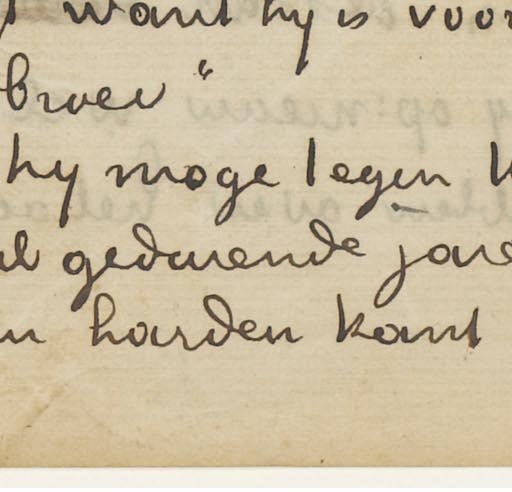 want hy is voor
broer"
hy moge legen
gedurende jare
harden kant